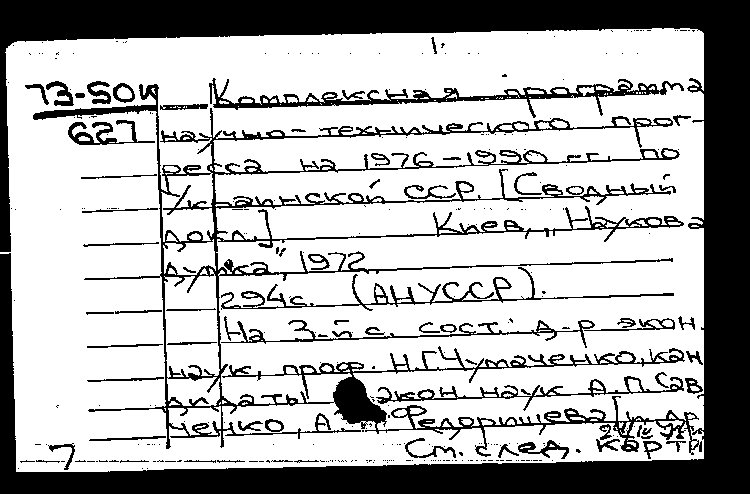 1.
73-50к Комплексная программа
627 научно-технического прог-
ресса на 1976-1990 гг. по
Украинской ССР. [Сводный
докл.]. Киев, „Наукова
думка", 1972.
294с. (АНУССР).
На 3-й с. сост.: д-р экон.
наук, проф. Н.Г.Чумаченко, кан
дидаты экон. наук А.П.Сав
ченко, А. Федорищева [и др
7 Ст. след. карт